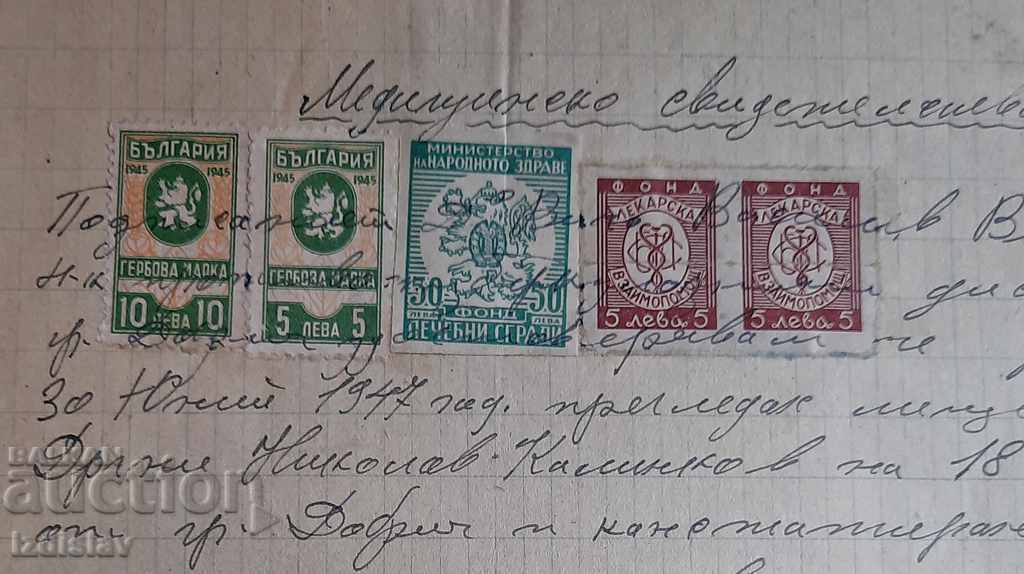 Медицинско свидетелство
БЪЛГАРИЯ
1945 1945
ГЕРБОВА МАРКА
10 ЛЕВА 10
БЪЛГАРИЯ
1945 1945
ГЕРБОВА МАРКА
5 ЛЕВА 5
МИНИСТЕРСТВО
НА НАРОДНОТО ЗДРАВЕ
50 50
ЛЕВА ФОНД ЛЕВА
ЛЕЧЕБНИ СГРАДИ
ФОНД
ЛЕКАРСКА
ВЗАИМОПОМОЩ
5 лева 5
ФОНД
ЛЕКАРСКА
ВЗАИМОПОМОЩ
5 лева 5
Подписаний В
н-к
гр. че
30 Юний 1947 год. прегледах
Николов на 18
от гр. Добрич и констатирах
BALKAN
auction
izdislav